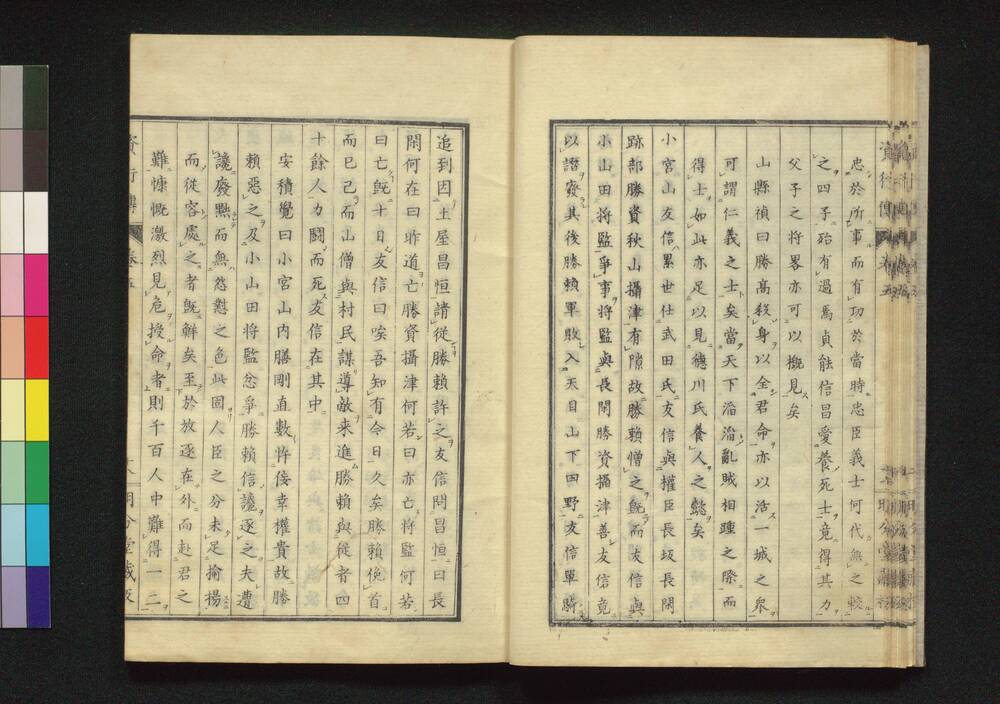 忠於所事而有功於當時忠臣義士何代無之較
之四子殆有過焉貞能信昌愛養死士竟得其力
父子之将畧亦可以概見矣
山縣禎曰勝高殺身以全君命亦以活一城之衆
可謂仁義之士矣當天下滔滔亂賊相踵之際而
得士如此亦足以見德川氏養人之懿矣
小宮山友信累世仕武田氏友信與權臣長坂長閑
跡部勝資秋山攝津有隙故勝賴憎之既而友信與
小山田将監爭事将監與長閑勝資攝津善友信竟
以譖竄其後勝賴軍敗入天目山下田野友信單騎
追到因土屋昌恒請從勝賴許之友信問昌恒曰長
閑何在曰昨道亡勝資攝津何若曰亦亡将監何若
曰亡既十日友信曰唉吾知有今日久矣勝賴俛首
而已己而山僧與村民謀導敵来進勝賴與従者四
十餘人力闘而死友信在其中
安積覺曰小宮山内膳剛直數忤倿幸權貴故勝
賴惡之及小山田将監忿爭勝賴信讒逐之夫遭
讒廢黜而無怨懟之色此固人臣之分未足揄揚
而従容處之者既鮮矣至於放逐在外而赴君之
難慷慨激烈見危授命者則千百人中難得一二